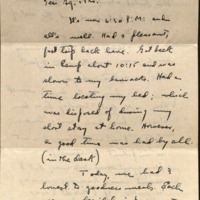 It's now 6:30 P.M. and
all's well. Had a pleasant,
fast trip back here. Got back
in Camp about 10:15 and was
down to my barracks. Had a
time locating my bed; which
was disposed of during my
short stay at home. However,
a good time was had by all.
(in the dark)
Today, we had 3
honest to goodness meals. Each